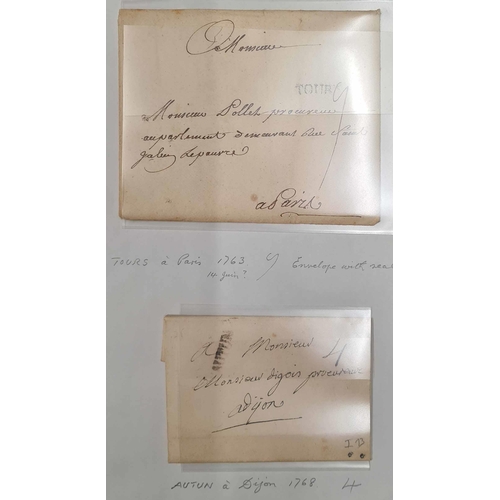 A Monsieur
TOURS 9
Monsieur Pollet procureur
au parlement demeurant Rue Saint
Julien Lepauvre
a Paris
TOURS à Paris 1763 9 Envelope with seal
14 Juin?
A Monsieur 4
Monsieur procureur
a dijon
I B
AUTUN à Dijon 1768 4